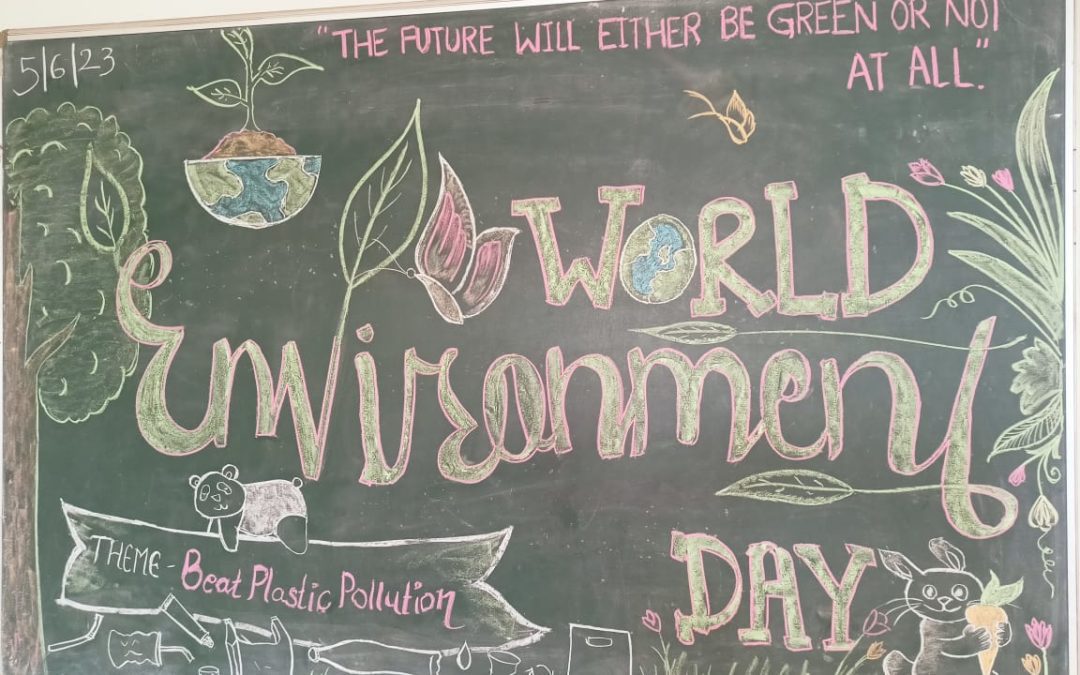 5/6/23
"THE FUTURE WILL EITHER BE GREEN OR NOT
AT ALL."
WORLD
Environmeny
DAY
THEME - Beat Plastic Pollution